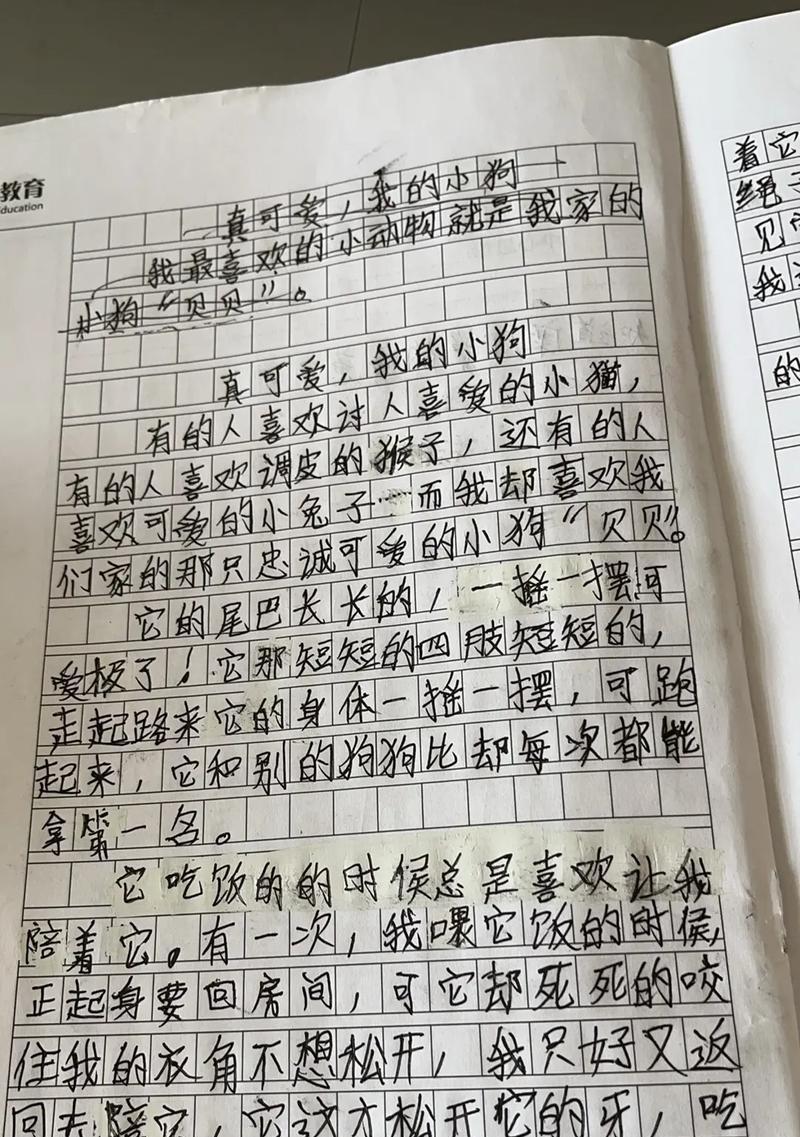 教育
ducation
真可爱，我的小狗
我最喜欢的小动物就是我家的
小狗“贝贝”。
真可爱，我的小狗
有的人喜欢讨人喜爱的小猫，
有的人喜欢调皮的猴子，还有的人
喜欢可爱的小兔子……而我却喜欢我
们家的那只忠诚可爱的小狗“贝贝”。
它的尾巴长长的，一摇一摆可
爱极了！它那短短的四肢短短的，
走起路来它的身体一摇一摆，可跑
起来，它和别的狗狗比却每次都能
拿第一名。
它吃饭的的时侯总是喜欢让我
陪着它。有一次，我喂它饭的时侯，
正起身要回房间，可它却死死的咬
住我的衣角不想松开，我只好又返
回去陪它，它这才松开它的牙，吃
着它
绳子
见
我
的